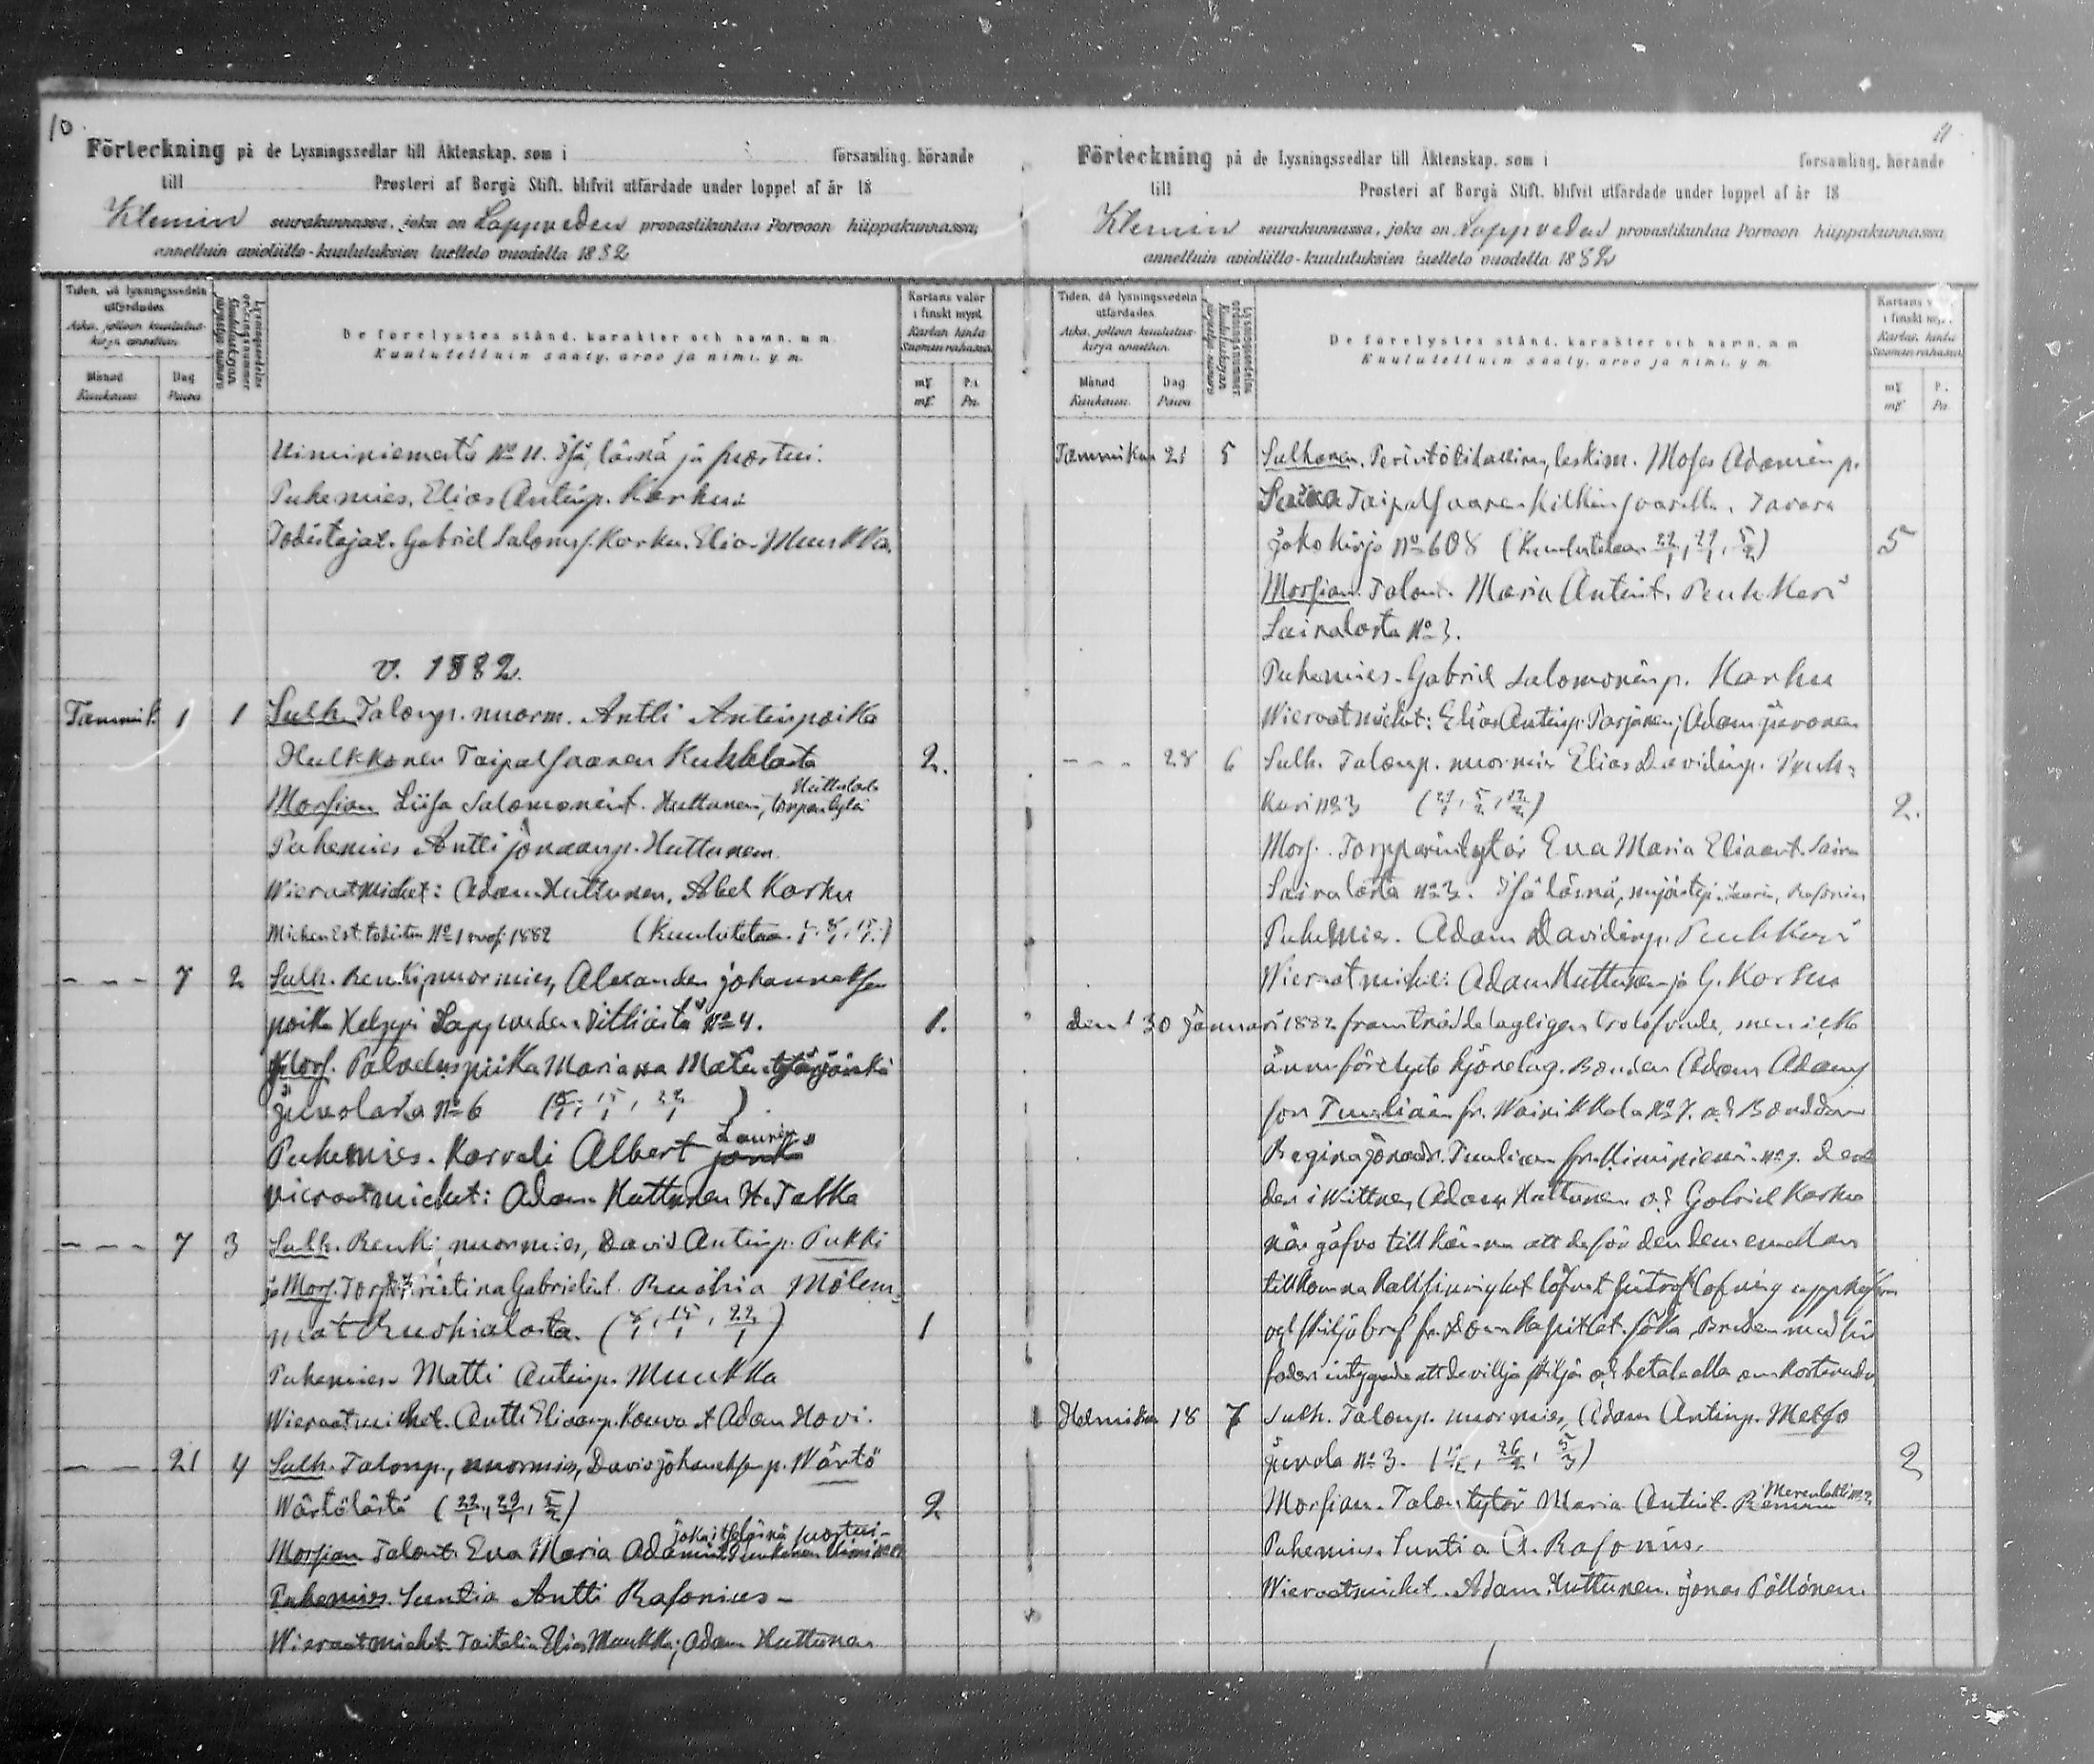 10
Förteckning på de Lysningssedlar till Äktenskap, som i församling, hörande
till Prosteri af Borgå Stift, blifvit utfärdade under loppet af år 18
Klemin seurakunnassa, joka on Lappveden provastikuntaa Porvoon hiippakunnassa,
annettuin avioliitto-kuulutuksien luettelo vuodelta 1882
Tiden, då lysningssedeln utfärdades
Aika, jolloin kuulutuskirja annettiin.
Månad
Kuukausi.
Dag
Päivä
Lysningssedelns ordningsnummer
Kuulutuskirjan järjestys numero
De förelystes stånd, karakter och namn, m m.
Kuulutettuin sääty, arvo ja nimi, y m.
Kartans valör i finskt mynt
Kartan hinta Suomen rahassa.
mk P:i
mk Pn.
Uiminiemestä No 11. Isä, läsnä ja suostui.
Puhemies, Elias Antinp. Karhu
Todistajat. Gabriel Saloms. Karhu. Elia Muukka.
v. 1882.
Tammik. 1 1 Sulh. Talonp. nuorm. Antti Antinpoika
Hulkkonen Taipalsaaren Kuhalasta 2.
Morsian Liisa Salomonint. Huttunen, torparitytär
Huttulasta
Puhemies Antti Jonaanp. Huttunen.
Wieraatmiehet: Adam Huttunen, Abel Karhu
No 1 1882 (Kuulutetaan 1/1. 8/1. 15/1.)
- - - 7 2 Sulh. Renki, nuormies, Alexander Johanneksen
poika Helppi Lappveden No 4. 1.
Mors. Piika Marianna
Juvolasta No 6 (8/1, 15/1, 22/1)
Puhemies. Karvali Albert Laurin
vieraatmiehet: Adam Huttunen H. Talka
- - - 7 3 Sulh. Renki, nuormies, David Antinp. Pukki
ja Mors. Kristina Gabrielint. Ruohia Molem-
mat Ruohialasta. (8/1, 15/1, 22/1) 1
Puhemies Matti Antinp. Muukka
Wieraatmiehet. Antti Eliaanp. Kouva & Adam Hovi.
- - 21 4 Sulh. Talonp., nuormies, David Johanneksenp. Wärtö
Wärtölästä (22/1, 29/1, 5/2) 2
joka itse läsnä suostui-
Morsian Talont. Eva Maria Adamint.
Puhemies. Suntia Antti Rasonius -
Wieraatmiehet Elias Muukka, Adam Huttunen
11
Förteckning på de Lysningssedlar till Äktenskap, som i församling, hörande
till Prosteri af Borgå Stift, blifvit utfärdade under loppet af år 18
Klemin seurakunnassa, joka on Lappveden provastikuntaa Porvoon hiippakunnassa
annettuin avioliitto-kuulutuksien luettelo vuodelta 1882
Tiden, då lysningssedeln utfärdades
Aika, jolloin kuulutuskirja annettiin.
Månad
Kuukausi.
Dag
Päivä
Lysningssedelns ordningsnummer
Kuulutuskirjan järjestys numero
De förelystes stånd, karakter och namn, m m
Kuulutettuin sääty, arvo ja nimi, y m.
Kartans i finskt
Kartan hinta Suomen rahassa
mk P:i
mk Pn
Tammikuu 21 5 Sulhanen. Perintötilallinen, leskim. Moses Adamin p.
Taipalsaaren
jako kirja No 608 (Kuulutetaan 22/1, 29/1, 5/2) 5
Morsian. Talont. Maria Antint. Puukkari
Sairalasta No 3.
Puhemies. Gabriel Salomonin p. Karhu
Wieraatmiehet: Elias Antinp. Parjanen, Adam Juvonen
- - - 28 6 Sulh. Talonp. nuormies Elias Davidinp. Puuk-
kari No 3 (29/1, 5/2, 12/2) 2.
Mors. Torpparintytär Eva Maria Eliaant.
Sairalasta No 3. Isä läsnä, Rasonius
Puhemies. Adam Davidinp. Puukkari
Wieraatmiehet: Adam Huttunen ja G. Karhu
den 30 Januari 1882 framträdde lagligen trolofvade, men icke
ännu förelysta hjonelag. Bonden Adam Adams
son Tuuliainen fr. Wainikkala No 7. och Bonddr
Regina Jonaedr. Tuuliainen fr. No 9.
Adam Huttunen och Gabriel Karhu
när gåfvo tillkänna att de för den dem emellan
tillkomna kallsinnighet
och skiljobref fr. Domkapitlet söka, Bruden med sin
fader intygade att de vilja skiljas och betala alla omkostnader
Helmikuu 18 7 Sulh. Talonp. nuormies, Adam Antinp. Metso
Juvola No 3. (19/2, 26/2, 5/3) 2
Morsian. Talontytär Maria Antint.
Merenlahti No 2
Puhemies. Suntia A. Rasonius.
Wieraatmiehet. Adam Huttunen. Jonas Pöllönen.